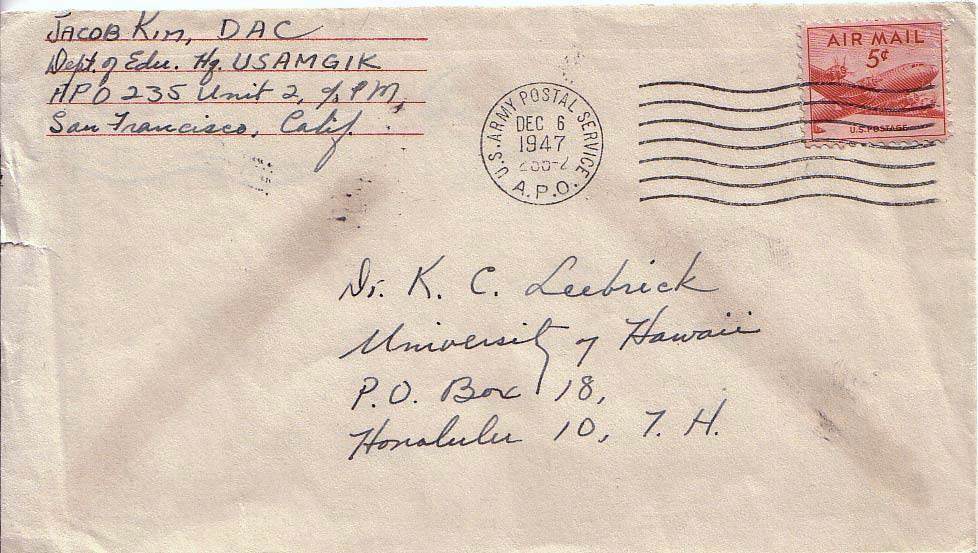 JACOB KIM, DAC
Dept. of Edu. Hq. USAMGIK
APO 235 Unit 2, % PM,
San Francisco, Calif.
U.S. ARMY POSTAL SERVICE
DEC 6
1947
A.P.O.
AIR MAIL
5¢
U.S. POSTAGE
Dr. K. C. Leebrick
University of Hawaii
P.O. Box 18,
Honolulu 10, T. H.